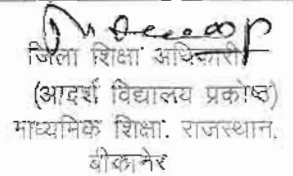 जिला शिक्षा अधिकारी
(आदर्श विद्यालय प्रकोष्ठ)
माध्यमिक शिक्षा. राजस्थान.
बीकानेर